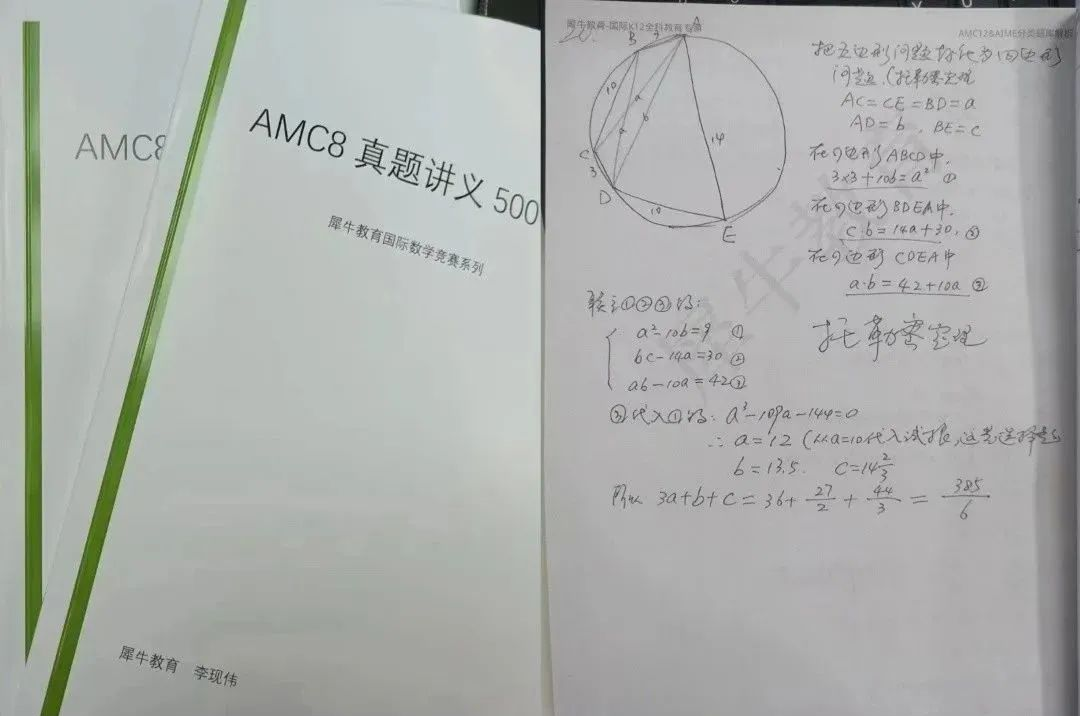 AMC8
AMC8 真题讲义 500
犀牛教育国际数学竞赛系列
犀牛教育 李现伟
犀牛教育-国际K12全科教育专家
AMC12&AIME分类题库解析
20.
A
B
3
10
a
a
b
14
C
3
D
10
E
把五边形问题转化为四边形
问题(托勒密定理
AC=CE=BD=a
AD=b, BE=c
在四边形ABCD中,
3×3+10b=a² ①
在四边形BDEA中,
c·b=14a+30, ②
在四边形 CDEA中
a·b=42+10a ③
托勒密定理
联立①②③得:
a²-10b=9 ①
bc-14a=30 ②
ab-10a=42 ③
③代入①得: a³-109a-144=0
∴ a=12 (从a=10代入试根,这是选择题
b=13.5. c=14 2/3
所以 3a+b+c=36+27/2+44/3=385/6
犀牛教育